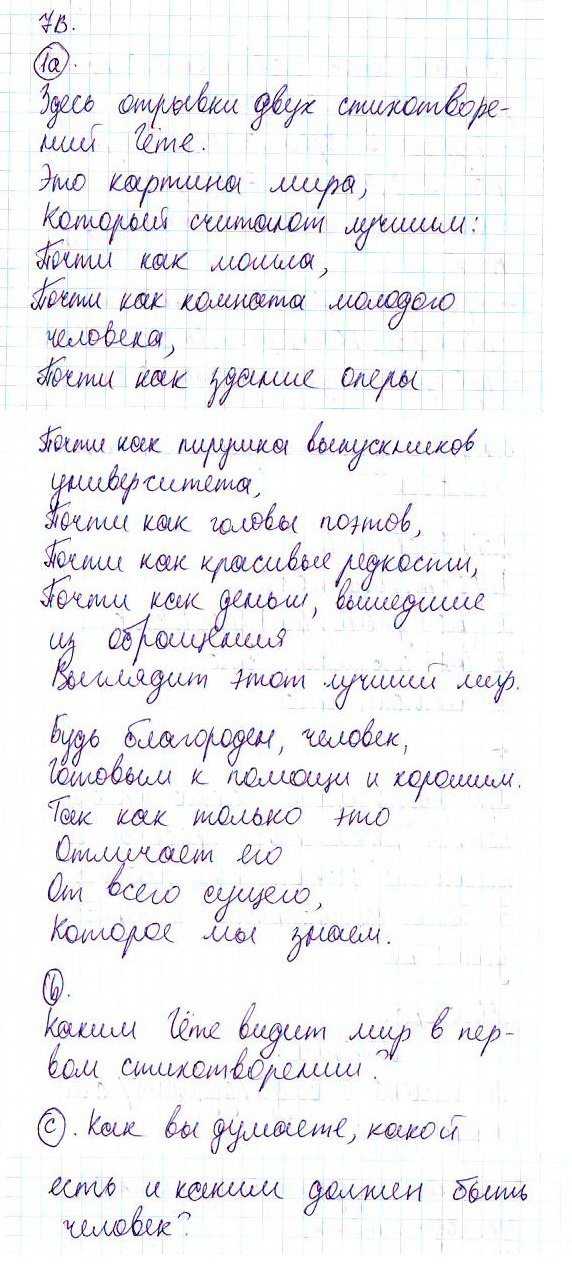 7В.
1а.
Здесь отрывки двух стихотворе-
ний Гёте.
Это картина мира,
Который считают лучшим:
Почти как могила,
Почти как комната молодого
человека,
Почти как здание оперы
Почти как пирушка выпускников
университета,
Почти как головы поэтов,
Почти как красивые редкости,
Почти как деньги, вышедшие
из обращения
Выглядит этот лучший мир.
Будь благороден, человек,
Готовым к помощи и хорошим.
Так как только это
Отличает его
От всего сущего,
Которое мы знаем.
b.
Каким Гёте видит мир в пер-
вом стихотворении?
c. Как вы думаете, какой
есть и каким должен быть
человек?